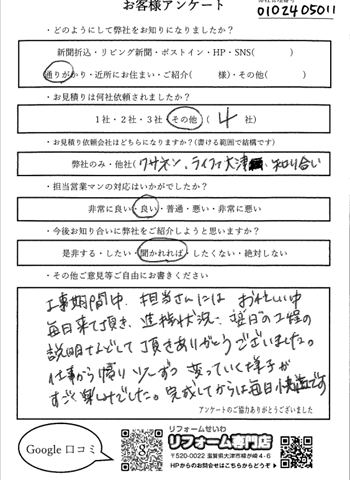 お客様アンケート
0102405011
・どのようにして弊社をお知りになりましたか?
新聞折込・リビング新聞・ポストイン・HP・SNS( )
通りがかり・近所にお住まい・ご紹介( 様)・その他( )
・お見積りは何社依頼されましたか?
1社・2社・3社・その他( 4 社)
・お見積り依頼会社はどちらになりますか?(書ける範囲で結構です)
弊社のみ・他社( ワサネン、ライファ大津、知り合い
・担当営業マンの対応はいかがでしたか?
非常に良い・良い・普通・悪い・非常に悪い
・今後お知り合いに弊社をご紹介しようと思いますか?
是非する・したい・聞かれれば・したくない・絶対しない
・その他ご意見等ご自由にお書きください
工事期間中、担当さんには お忙しい中
毎日来て頂き、進捗状況、翌日の工程の
説明などして頂きありがとうございました。
仕事から帰り 少しずつ 変っていく様子が
すごく楽しみでした。完成してからは毎日快適です
アンケートのご協力ありがとうございました
Google 口コミ
リフォームせいわ
リフォーム専門店
〒520-0022 滋賀県大津市柳が崎4-6
HPからのお問合せはこちらからどうぞ